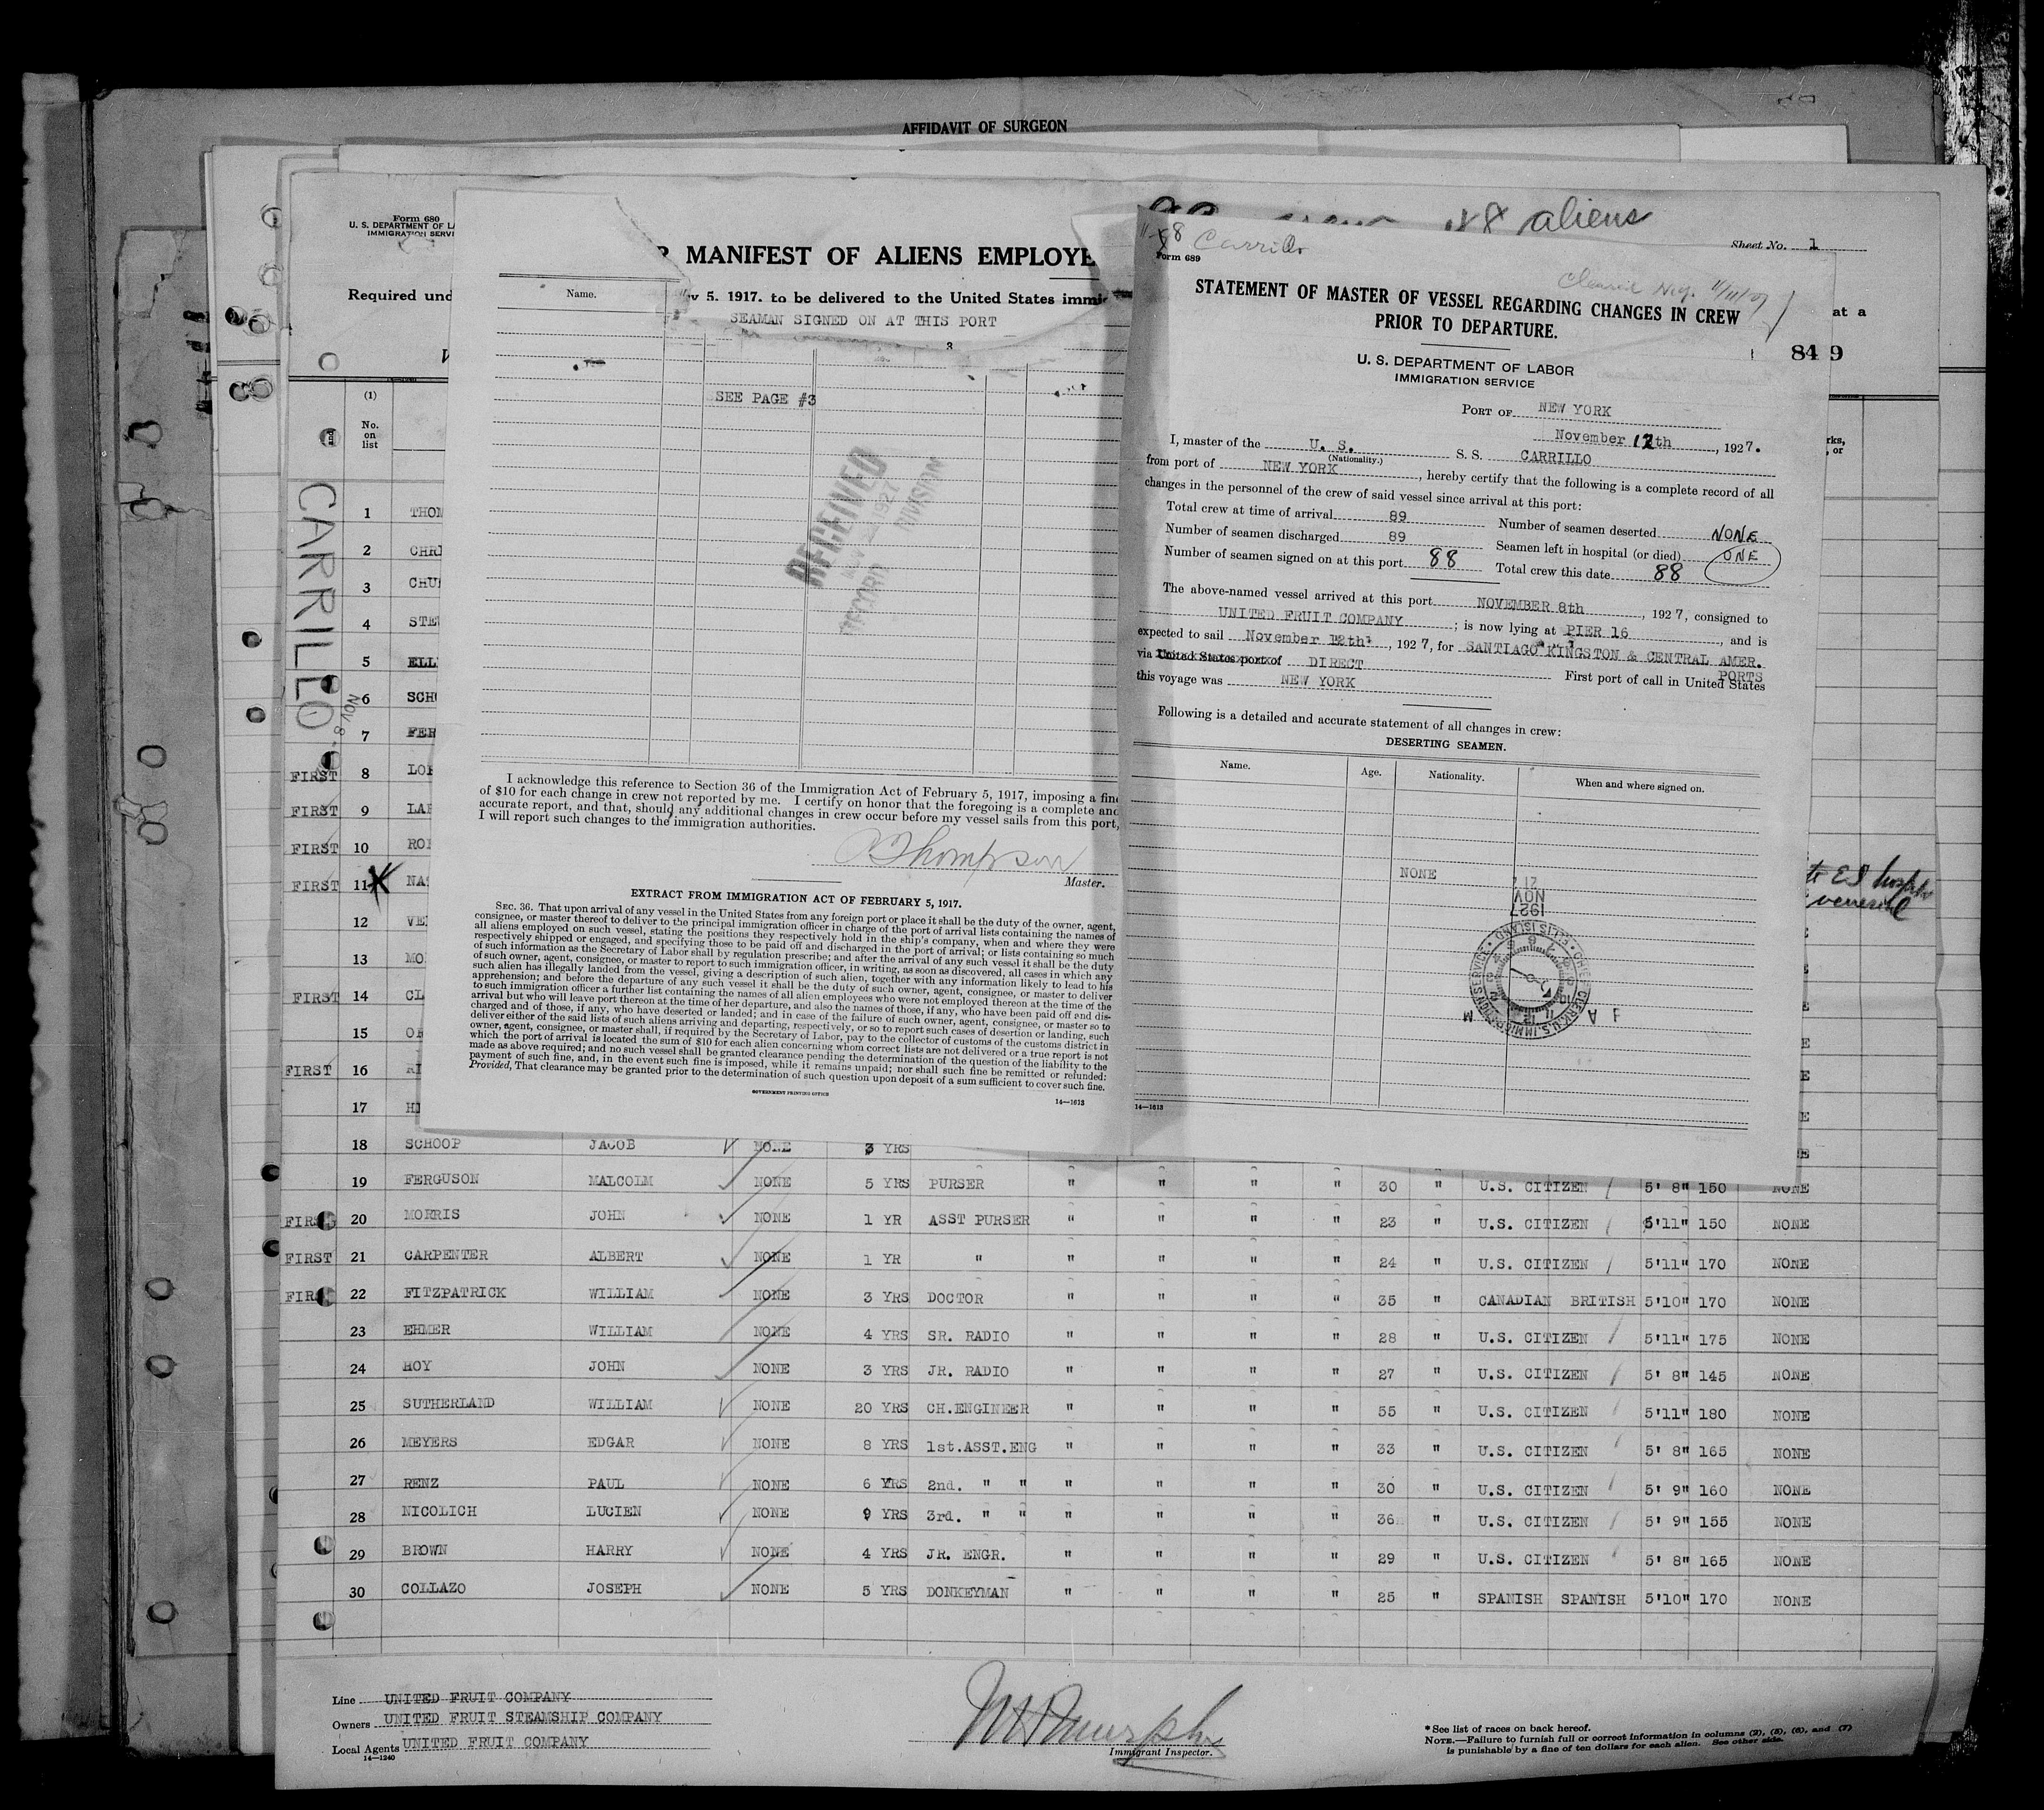 AFFIDAVIT OF SURGEON
Form 680
U. S. DEPARTMENT OF L
IMMIGRATION SERV
aliens
Sheet No. 1
MANIFEST OF ALIENS EMPLOYE
Required und
v 5. 1917. to be delivered to the United States immi
at a
849
(1)
No.
on
list
and
rks,
, or
CARRILLO
NOV 8
Name.
SEAMAN SIGNED ON AT THIS PORT
3
SEE PAGE #3
RECEIVED
1927
RECORD DIVISION
I acknowledge this reference to Section 36 of the Immigration Act of February 5, 1917, imposing a fine
of $10 for each change in crew not reported by me. I certify on honor that the foregoing is a complete and
accurate report, and that, should any additional changes in crew occur before my vessel sails from this port,
I will report such changes to the immigration authorities.
Thompson
Master.
EXTRACT FROM IMMIGRATION ACT OF FEBRUARY 5, 1917.
SEC. 36. That upon arrival of any vessel in the United States from any foreign port or place it shall be the duty of the owner, agent,
consignee, or master thereof to deliver to the principal immigration officer in charge of the port of arrival lists containing the names of
all aliens employed on such vessel, stating the positions they respectively hold in the ship's company, when and where they were
respectively shipped or engaged, and specifying those to be paid off and discharged in the port of arrival; or lists containing so much
of such information as the Secretary of Labor shall by regulation prescribe; and after the arrival of any such vessel it shall be the duty
of such owner, agent, consignee, or master to report to such immigration officer, in writing, as soon as discovered, all cases in which any
such alien has illegally landed from the vessel, giving a description of such alien, together with any information likely to lead to his
apprehension; and before the departure of any such vessel it shall be the duty of such owner, agent, consignee, or master to deliver
to such immigration officer a further list containing the names of all alien employees who were not employed thereon at the time of the
arrival but who will leave port thereon at the time of her departure, and also the names of those, if any, who have been paid off and dis-
charged and of those, if any, who have deserted or landed; and in case of the failure of such owner, agent, consignee, or master so to
deliver either of the said lists of such aliens arriving and departing, respectively, or so to report such cases of desertion or landing, such
owner, agent, consignee, or master shall, if required by the Secretary of Labor, pay to the collector of customs of the customs district in
which the port of arrival is located the sum of $10 for each alien concerning whom correct lists are not delivered or a true report is not
made as above required; and no such vessel shall be granted clearance pending the determination of the question of the liability to the
payment of such fine, and, in the event such fine is imposed, while it remains unpaid; nor shall such fine be remitted or refunded:
Provided, That clearance may be granted prior to the determination of such question upon deposit of a sum sufficient to cover such fine.
GOVERNMENT PRINTING OFFICE
14—1613
Carrillo
Form 689
STATEMENT OF MASTER OF VESSEL REGARDING CHANGES IN CREW
PRIOR TO DEPARTURE.
U. S. DEPARTMENT OF LABOR
IMMIGRATION SERVICE
PORT OF NEW YORK
November 12th, 1927.
I, master of the U. S. S. S. CARRILLO
(Nationality.)
from port of NEW YORK, hereby certify that the following is a complete record of all
changes in the personnel of the crew of said vessel since arrival at this port:
Total crew at time of arrival 89 Number of seamen deserted NONE
Number of seamen discharged 89 Seamen left in hospital (or died) ONE
Number of seamen signed on at this port 88 Total crew this date 88
The above-named vessel arrived at this port NOVEMBER 8th, 1927, consigned to
UNITED FRUIT COMPANY; is now lying at PIER 16, and is
expected to sail November 12th, 1927, for SANTIAGO KINGSTON & CENTRAL AMER.
PORTS
via United States port of DIRECT First port of call in United States
this voyage was NEW YORK
Following is a detailed and accurate statement of all changes in crew:
DESERTING SEAMEN.
Name. Age. Nationality. When and where signed on.
NONE
NOV
1927
CHIEF CLERK, U.S. IMMIGRATION SERVICE • ELLIS ISLAND •
14—1613
1 THOM
2 CHRI
3 CHU
4 STE
5 ELL
6 SCH
7 FER
FIRST 8 LO
FIRST 9 LA
FIRST 10 RO
FIRST 11 NA
hospital
12 VE
13 MO
FIRST 14 CL
15
FIRST 16
17 HI
18 SCHOOP JACOB NONE 3 YRS
19 FERGUSON MALCOLM NONE 5 YRS PURSER " " " " 30 " U.S. CITIZEN 5' 8" 150 NONE
FIRST 20 MORRIS JOHN NONE 1 YR ASST PURSER " " " " 23 " U.S. CITIZEN 5'11" 150 NONE
FIRST 21 CARPENTER ALBERT NONE 1 YR " " " " " 24 " U.S. CITIZEN 5'11" 170 NONE
FIRST 22 FITZPATRICK WILLIAM NONE 3 YRS DOCTOR " " " " 35 " CANADIAN BRITISH 5'10" 170 NONE
23 EHMER WILLIAM NONE 4 YRS SR. RADIO " " " " 28 " U.S. CITIZEN 5'11" 175 NONE
24 HOY JOHN NONE 3 YRS JR. RADIO " " " " 27 " U.S. CITIZEN 5' 8" 145 NONE
25 SUTHERLAND WILLIAM NONE 20 YRS CH.ENGINEER " " " " 55 " U.S. CITIZEN 5'11" 180 NONE
26 MEYERS EDGAR NONE 8 YRS 1st.ASST.ENG " " " " 33 " U.S. CITIZEN 5' 8" 165 NONE
27 RENZ PAUL NONE 6 YRS 2nd. " " " " " " 30 " U.S. CITIZEN 5' 9" 160 NONE
28 NICOLICH LUCIEN NONE 9 YRS 3rd. " " " " " " 36 " U.S. CITIZEN 5' 9" 155 NONE
29 BROWN HARRY NONE 4 YRS JR. ENGR. " " " " 29 " U.S. CITIZEN 5' 8" 165 NONE
30 COLLAZO JOSEPH NONE 5 YRS DONKEYMAN " " " " 25 " SPANISH SPANISH 5'10" 170 NONE
Line UNITED FRUIT COMPANY
Owners UNITED FRUIT STEAMSHIP COMPANY
Local Agents UNITED FRUIT COMPANY
14—1240
Immigrant Inspector.
* See list of races on back hereof.
NOTE.—Failure to furnish full or correct information in columns (2), (5), (6), and (7)
is punishable by a fine of ten dollars for each alien. See other side.